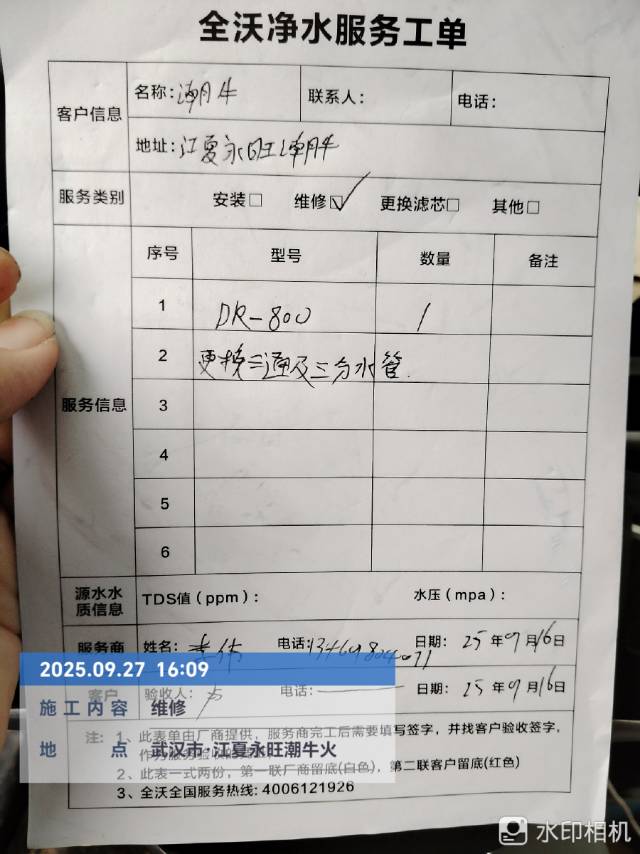 全沃净水服务工单
客户信息
名称: 潮牛
联系人:
电话:
地址: 江夏永旺潮牛
服务类别
安装□ 维修☑ 更换滤芯□ 其他□
服务信息
序号 型号 数量 备注
1 DR-800 1
2 更换三通及三分水管.
3
4
5
6
源水水质信息
TDS值(ppm): 水压(mpa):
服务商 姓名: 电话: 日期: 25年09月16日
2025.09.27 16:09
客户 验收人: 电话: 日期: 25年09月16日
施工内容 维修
注: 1、此表单由厂商提供,服务商完工后需要填写签字,并找客户验收签字,
地点 武汉市·江夏永旺潮牛火
2、此表一式两份,第一联厂商留底(白色),第二联客户留底(红色)
3、全沃全国服务热线: 4006121926
水印相机